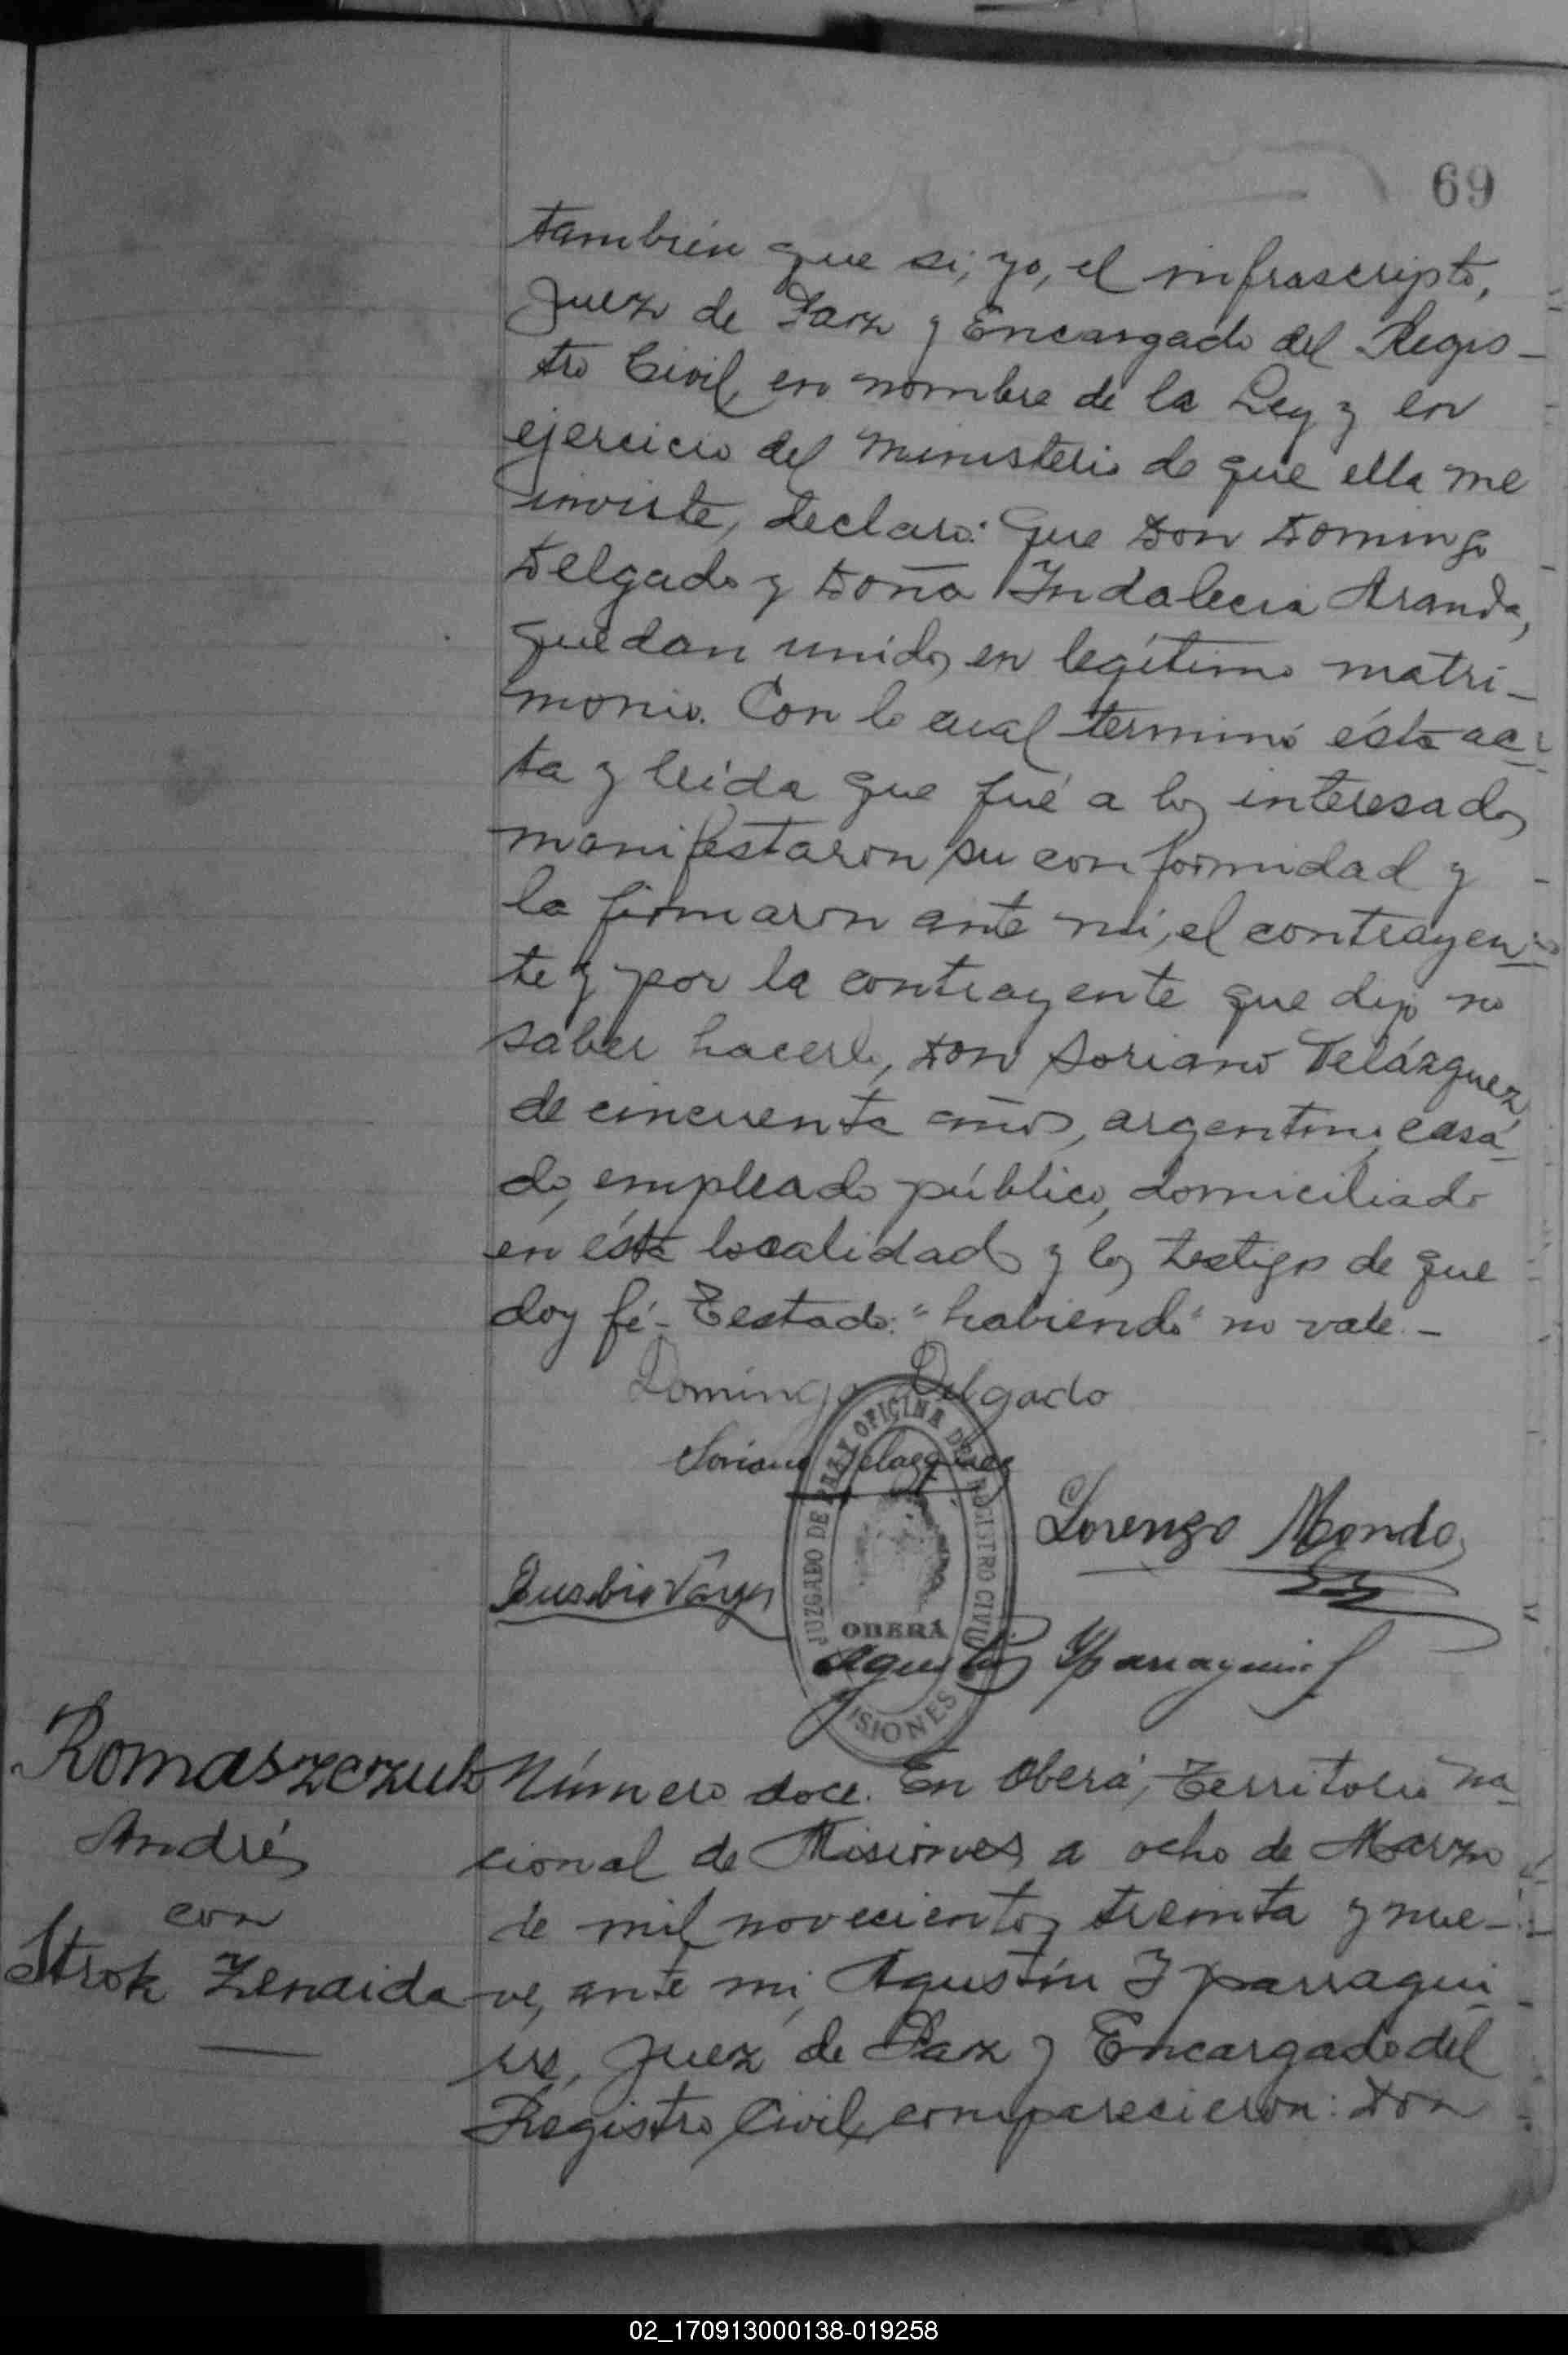 69
también que si, yo, el infrascripto,
Juez de Paz y Encargado del Regis-
tro Civil, en nombre de la Ley y en
ejercicio del ministerio de que ella me
inviste, declaro: Que Don Domingo
Delgado y Doña Indalecia Aranda,
quedan unidos en legítimo matri-
monio. Con lo cual terminó ésta ac-
ta y leída que fué a los interesados
manifestaron su conformidad y
la firmaron ante mí, el contrayen-
te y por la contrayente que dijo no
saber hacerlo, Don Soriano Velázquez,
de cincuenta años, argentino, casa-
do, empleado público, domiciliado
en ésta localidad y los testigos de que
doy fé- Testado: "habiendo" no vale.-
Domingo Delgado
Soriano Velazquez
Lorenzo Mondo
Eusebio
JUZGADO DE PAZ Y OFICINA DEL REGISTRO CIVIL
OBERÁ
MISIONES
Agustín Yparraguirre
Romaszczuk
André
con
Strok Zenaida
Número doce. En Oberá, Territorio na-
cional de Misiones a ocho de Marzo
de mil novecientos treinta y nue-
ve, ante mí, Agustín Yparragui-
rre, Juez de Paz y Encargado del
Registro Civil, comparecieron: Don
02_170913000138-019258